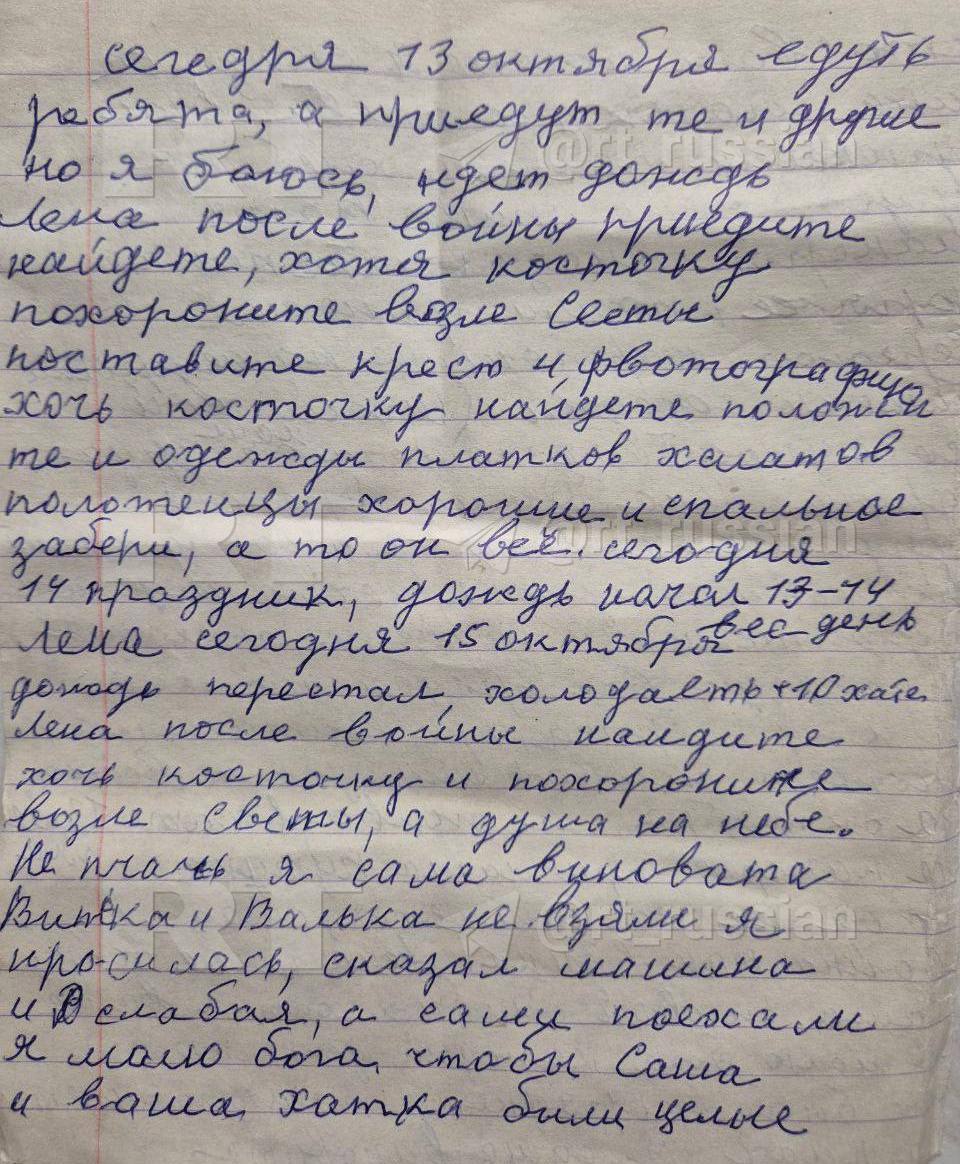 сегедря 13 октября едуть
ребята, а приедут те и другие
но я боюсь, идет дождь
Лена после войны приедите
найдете, хотя косточку
похороните возле Светы
поставите крест и фвотографию
хочь косточку найдете положи
те и одежды платков халатов
полотенцы хорошие и спальное
забери, а то он веч. сегодня
14 праздник, дождь начал 13-14
Лена сегодня 15 октября вес день
дождь перестал, холодаеть +10 хате.
Лена после войны наидите
хочь косточку и похороните
возле Светы, а душа на небе.
Не плачь я сама виновата
Витка и Валька не взяли я
просилась, сказал машина
и слабая, а сами поехали
я молю бога, чтобы Саша
и ваша хатка были целые
@rt_russian
@rt_russian
@rt_russian